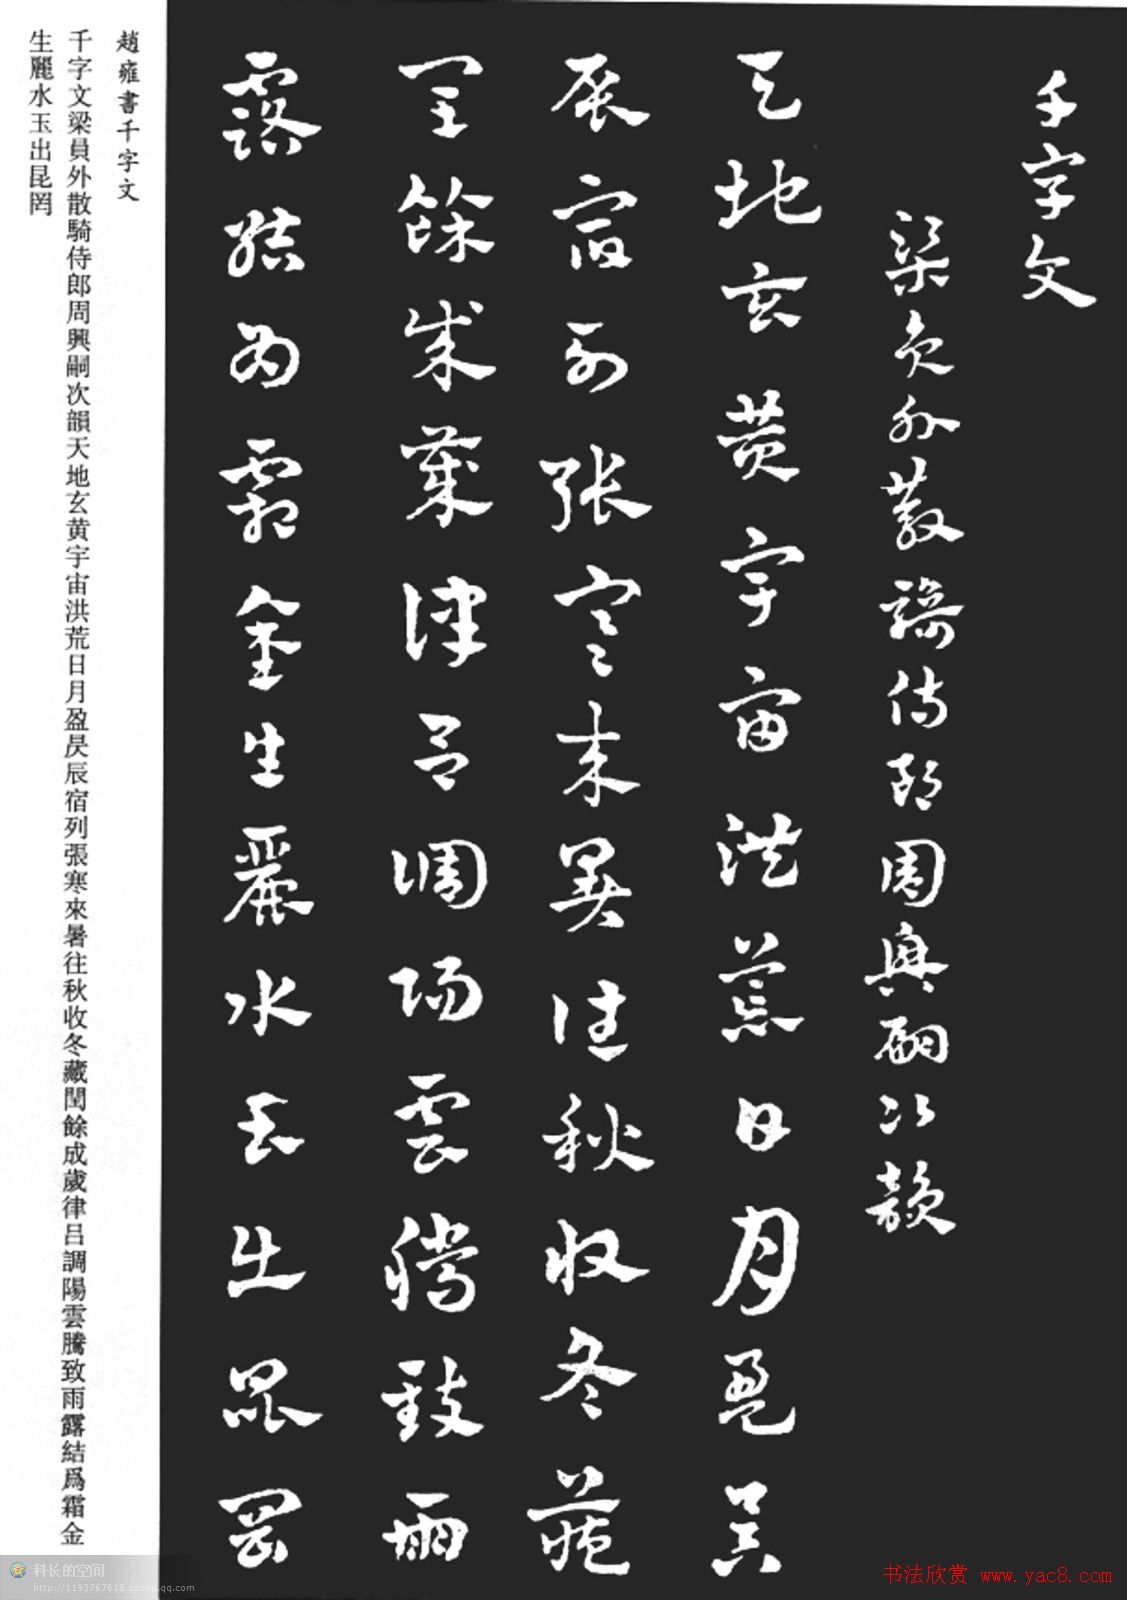 千字文
梁員外散騎侍郎周興嗣次韻
天地玄黃宇宙洪荒日月盈昃
辰宿列張寒來暑往秋收冬藏
閏餘成歲律呂調陽雲騰致雨
露結為霜金生麗水玉出崑岡
趙雍書千字文
千字文梁員外散騎侍郎周興嗣次韻天地玄黄宇宙洪荒日月盈昃辰宿列張寒來暑往秋收冬藏閏餘成歲律吕調陽雲騰致雨露結爲霜金
生麗水玉出昆罔
科长的空间
http://1193767618.qzone.qq.com
书法欣赏 www.yac8.com